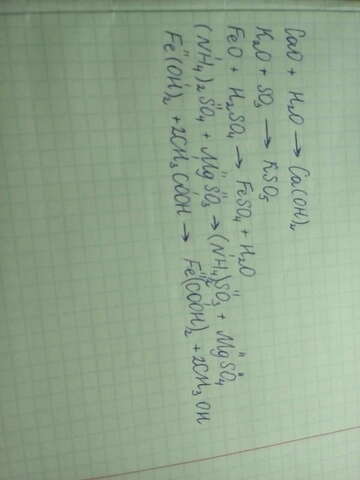 CaO + H₂O → Ca(OH)₂
K₂O + SO₃ → KSO₅
FeO + H₂SO₄ → FeSO₄ + H₂O
(NH₄)₂SO₄ + MgSO₃ → (NH₄)₂SO₃ + MgSO₄
Fe(OH)₂ + 2CH₃COOH → Fe(COOH)₂ + 2CH₃OH